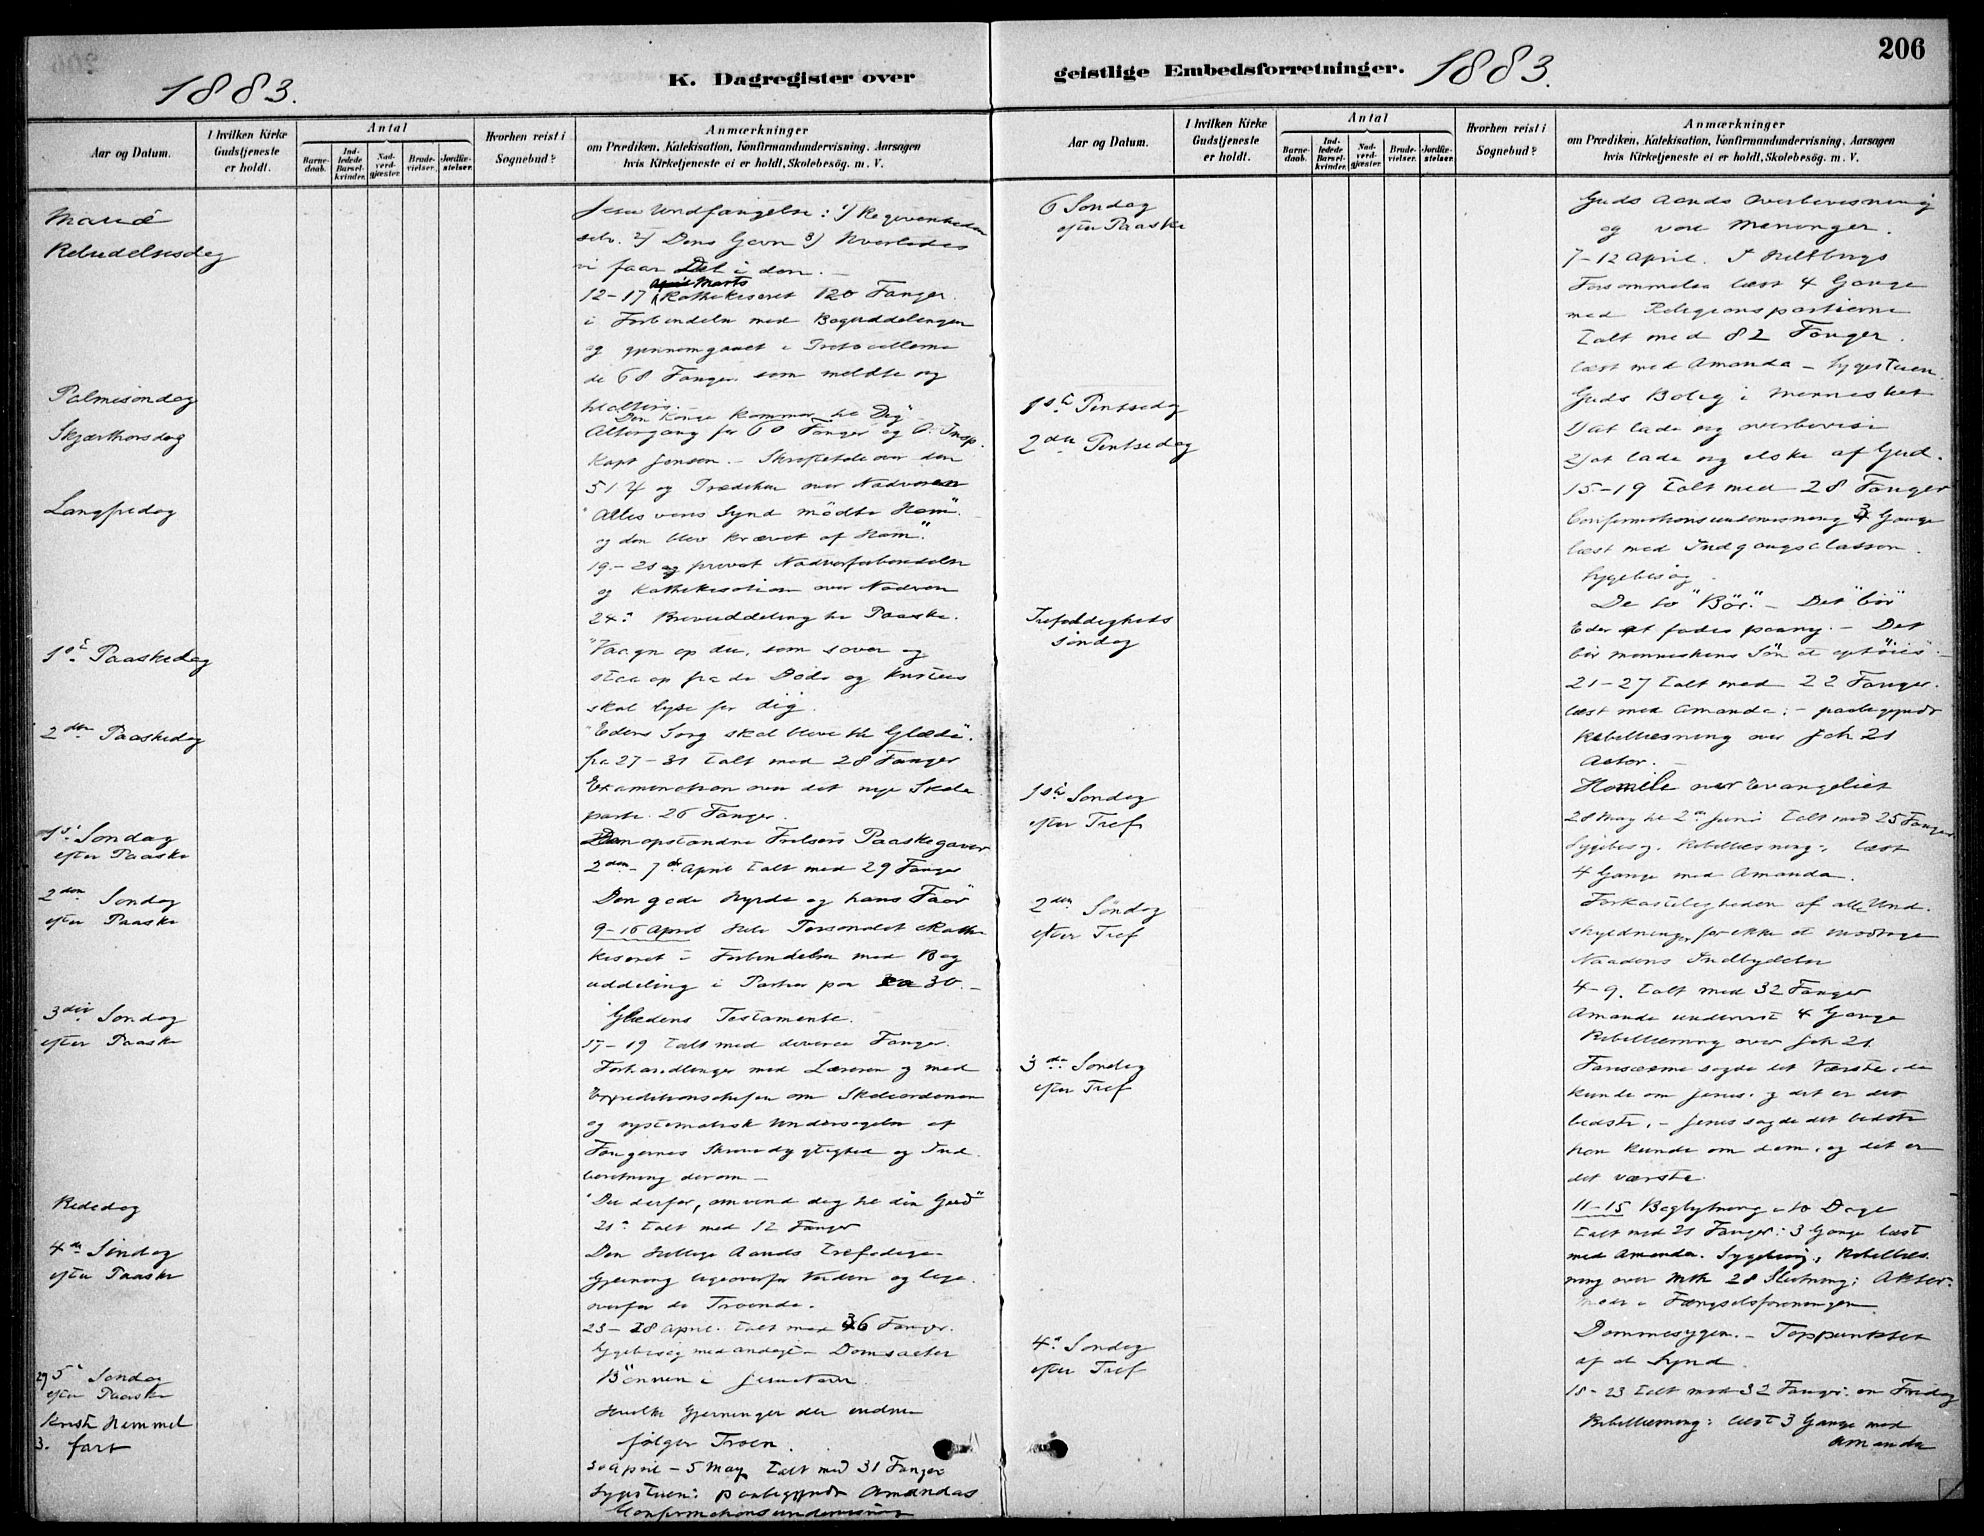 206
1883.
K. Dagregister over
geistlige Embedsforretninger.
1883.
Aar og Datum.
I hvilken Kirke Gudstjeneste er holdt.
Antal
Barnedaab.
Indledede Barselkvinder.
Nadverdgjæster.
Brudevielser.
Jordfæstelser.
Hvorhen reist i Sognebud?
Anmærkninger
om Prædiken, Katekisation, Konfirmandundervisning, Aarsagen
hvis Kirketjeneste ei er holdt, Skolebesøg. m. V.
Mariæ
Bebudelsesdag
Jesu Undfangelse: 1) Begivenheden
selv. 2) Dens Gavn 3) Hvorledes
vi faar Del i den. —
12-17 Marts Kathekiseret 120 Fanger
i Forbindelse med Boguddelingen
og gjennemgaaet i
de 68 Fanger som meldte sig
Palmesondag
"Den Konge kommer til Dig"
Skjærthorsdag
Altergang for 68 Fanger og O. Insp.
Kapt Jensen. — Skriftetale over den
51 ψ og Prædiken over Nadveren
Langfredag
"Alles vores Synd mödte Ham"
og den blev krævet af Ham".
19-21 og privat Nadverforberedelse
og Kathekisation over Nadveren
24. Brevuddeling til Paaske.
1ste Paaskedag
"Vaagn op du, som sover og
staa op fra de Döde og Kristus
skal lyse for dig.
2den Paaskedag
"Eders Sorg skal blive til Glæde".
fra 27-31 talt med 28 Fanger
Examination over det nye Skole
parti. 26 Fanger.
1ste Sondag
efter Paaske
Den opstandne Frelsers Paaskegaver
2den - 7de April talt med 29 Fanger
2den Sondag
efter Paaske
Den gode Hyrde og hans Faar
9-16 April Hele Personalet Kathe
kiseret i Forbindelse med Bog
uddeling i Partier paa 30. —
3die Sondag
efter Paaske
Glædens Testamente.
17-19 talt med diverse Fanger.
Forhandlinger med Læreren og med
Expeditionschefen om Skoleordenen
og systematisk Undersøgelse af
Fangernes Skrivedygtighed og Ind
beretning derom —
Bededag
"Du derfor, omvend dig til din Gud"
21. talt med 12 Fanger
4de Sondag
efter Paaske
Den Hellige Aands trefoldige
Gjerning ligeoverfor Verden og lige
overfor de Troende.
23-28 April. talt med 36 Fanger.
Sygebesøg med andagt — Domsacter
29 5te Sondag
efter Paaske
Bönnen i Jesu Navn.
Kristi Himmel
3. fart
Hvilke Gjerninger der endnu
følger Troen.
30 April - 5 May talt med 31 Fanger
Sygestuen: paabegyndt Amandas
Confirmationsundervisning
Aar og Datum.
I hvilken Kirke Gudstjeneste er holdt.
Antal
Barnedaab.
Indledede Barselkvinder.
Nadverdgjæster.
Brudevielser.
Jordfæstelser.
Hvorhen reist i Sognebud?
Anmærkninger
om Prædiken, Katekisation, Konfirmandundervisning, Aarsagen
hvis Kirketjeneste ei er holdt, Skolebesøg. m. V.
6 Sondag
efter Paaske
Guds Aands Overbevisning
og vore Meninger.
7-12 April. I
læst 4 Gange
med Religionspartierne
talt med 82 Fanger.
læst med Amanda — Sygestuen
1ste Pintsedag
Guds Bolig i Mennesket
2den Pintsedag
1) at lade sig overbevise
2) at lade sig elske af Gud.
15-19 talt med 28 Fanger
Confirmationsundervisning 3 Gange
læst med Indgangsclassen.
Sygebesøg.
Trefoldigheds
söndag
De to "Bör". — Det "bör"
Eder at fødes paany. — Det
bör Menneskens Søn at ophöies —
21-27 talt med 22 Fanger.
læst med Amanda: — paabegyndt
Bibellæsning over Joh 21
Acter. —
1ste Sondag
efter Tref
Homilie over Evangeliet
28 May til 2den Juni talt med 25 Fanger
Sygebesøg. Bibellæsning: læst
4 Gange med Amanda.
2den Söndag
efter Tref
Forkasteligheden af alle Und
skyldninger for ikke at modtage
Naadens Indbydelse
4-9. talt med 32 Fanger
Amanda undervist 4 Gange
Bibellæsning over Joh 21.
3die Sondag
efter Tref
Farisæerne sagde det Værste de
kunde om Jesus. og det er det
bedste. — Jesus sagde det bedste
han kunde om dem, og det er
det værste.
11-15 Bogbytning i to Dage
talt med 21 Fanger: 3 Gange læst
med Amanda. Sygebesøg, Bibellæs
ning over Mth 28 Slutning; Akter.
møde i Fængselsforeningen
4de Sondag
efter Tref
Dommesygen. — Toppunktet
af al Synd.
18-23 talt med 32 Fanger. en Fredag
Bibellæsning: læst 3 Gange med
Amanda